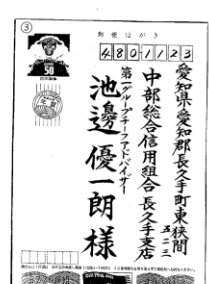 ③
郵便はがき
50
480-1123
愛知県愛知郡長久手町東狭間
五二三
中部総合信用組合 長久手支店
第一グループチーフアドバイザー
池邊 優一朗 様